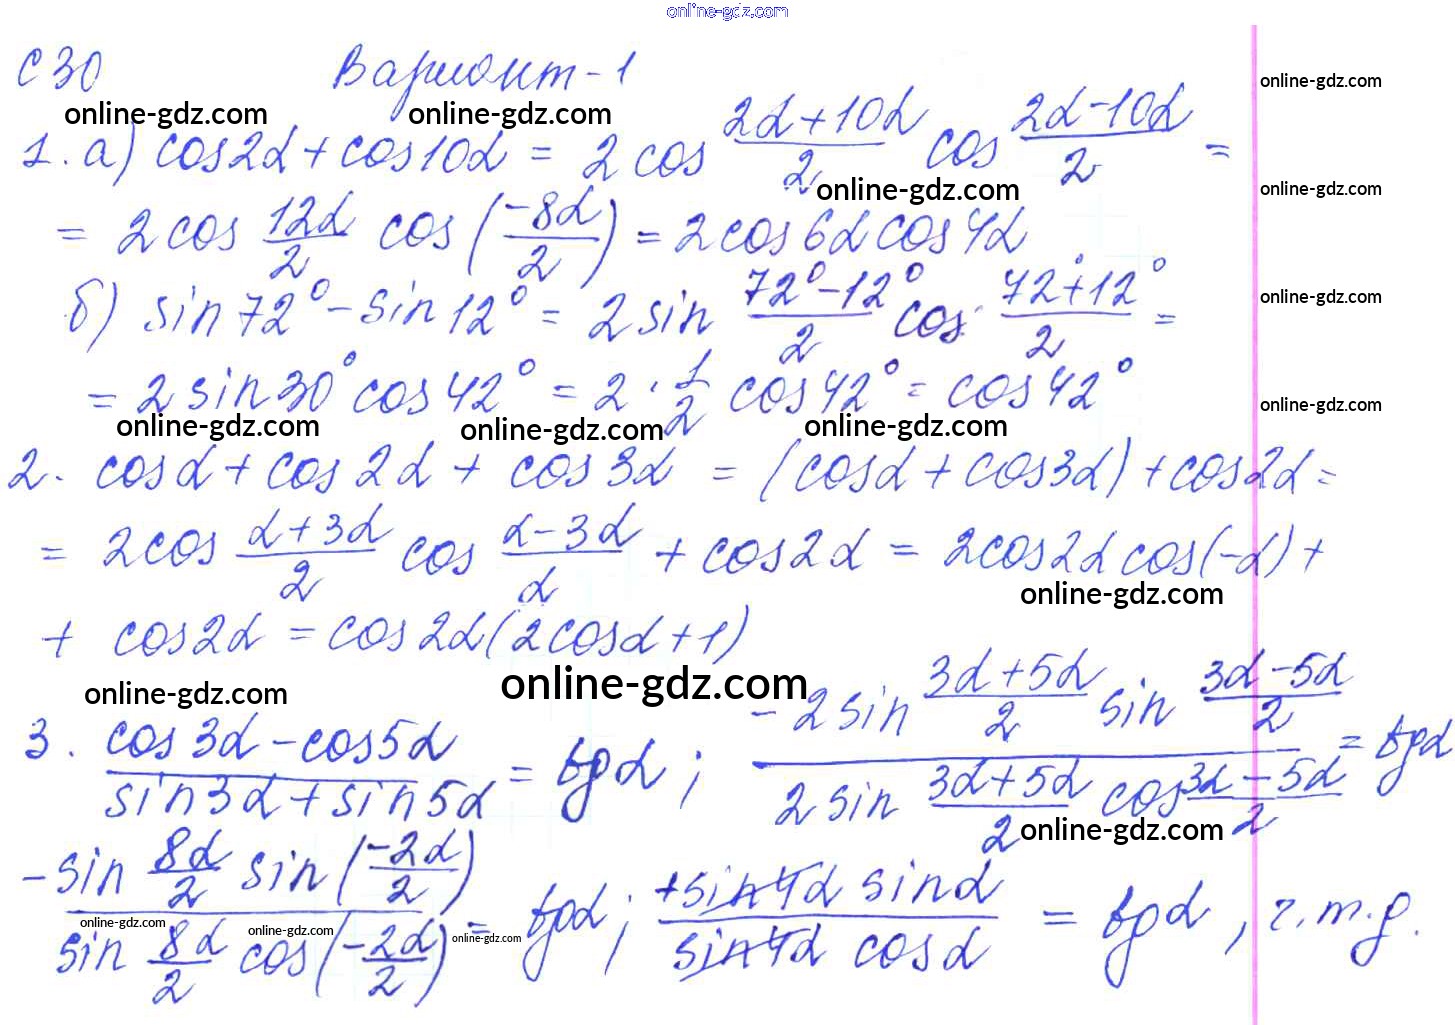 online-gdz.com
С 30 Вариант-1
online-gdz.com
online-gdz.com online-gdz.com
1. а) cos2α + cos10α = 2 cos (2α+10α)/2 cos (2α-10α)/2 =
online-gdz.com online-gdz.com
= 2 cos 12α/2 cos (-8α/2) = 2 cos 6α cos 4α
online-gdz.com
б) sin 72° - sin 12° = 2 sin (72°-12°)/2 cos (72°+12°)/2 =
= 2 sin 30° cos 42° = 2 · 1/2 cos 42° = cos 42°
online-gdz.com
online-gdz.com online-gdz.com online-gdz.com
2. cos α + cos 2α + cos 3α = (cos α + cos 3α) + cos 2α =
= 2 cos (α+3α)/2 cos (α-3α)/α + cos 2α = 2 cos 2α cos(-α) +
online-gdz.com
+ cos 2α = cos 2α (2 cos α + 1)
online-gdz.com online-gdz.com
3. (cos 3α - cos 5α)/(sin 3α + sin 5α) = tg α; (-2 sin (3α+5α)/2 sin (3α-5α)/2)/(2 sin (3α+5α)/2 cos (3α-5α)/2) = tg α
online-gdz.com
(-sin 8α/2 sin (-2α/2))/(sin 8α/2 cos (-2α/2)) = tg α; (+sin 4α sin α)/(sin 4α cos α) = tg α, ч.т.д.
online-gdz.com online-gdz.com online-gdz.com